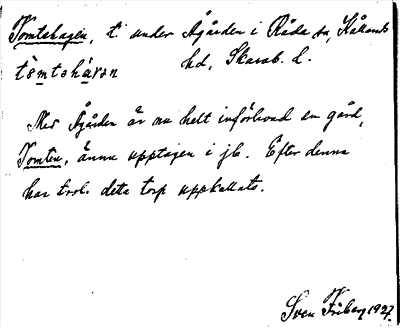 Tomtehagen, t. under Ågården i Råda sn, Kållands
tòmtehàvan hd, Skarab. l.
Med Ågården är nu helt införlivad en gård,
Tomten, ännu upptagen i jb. Efter denna
har trol. detta torp uppkallats.
Sven Friberg 1927.